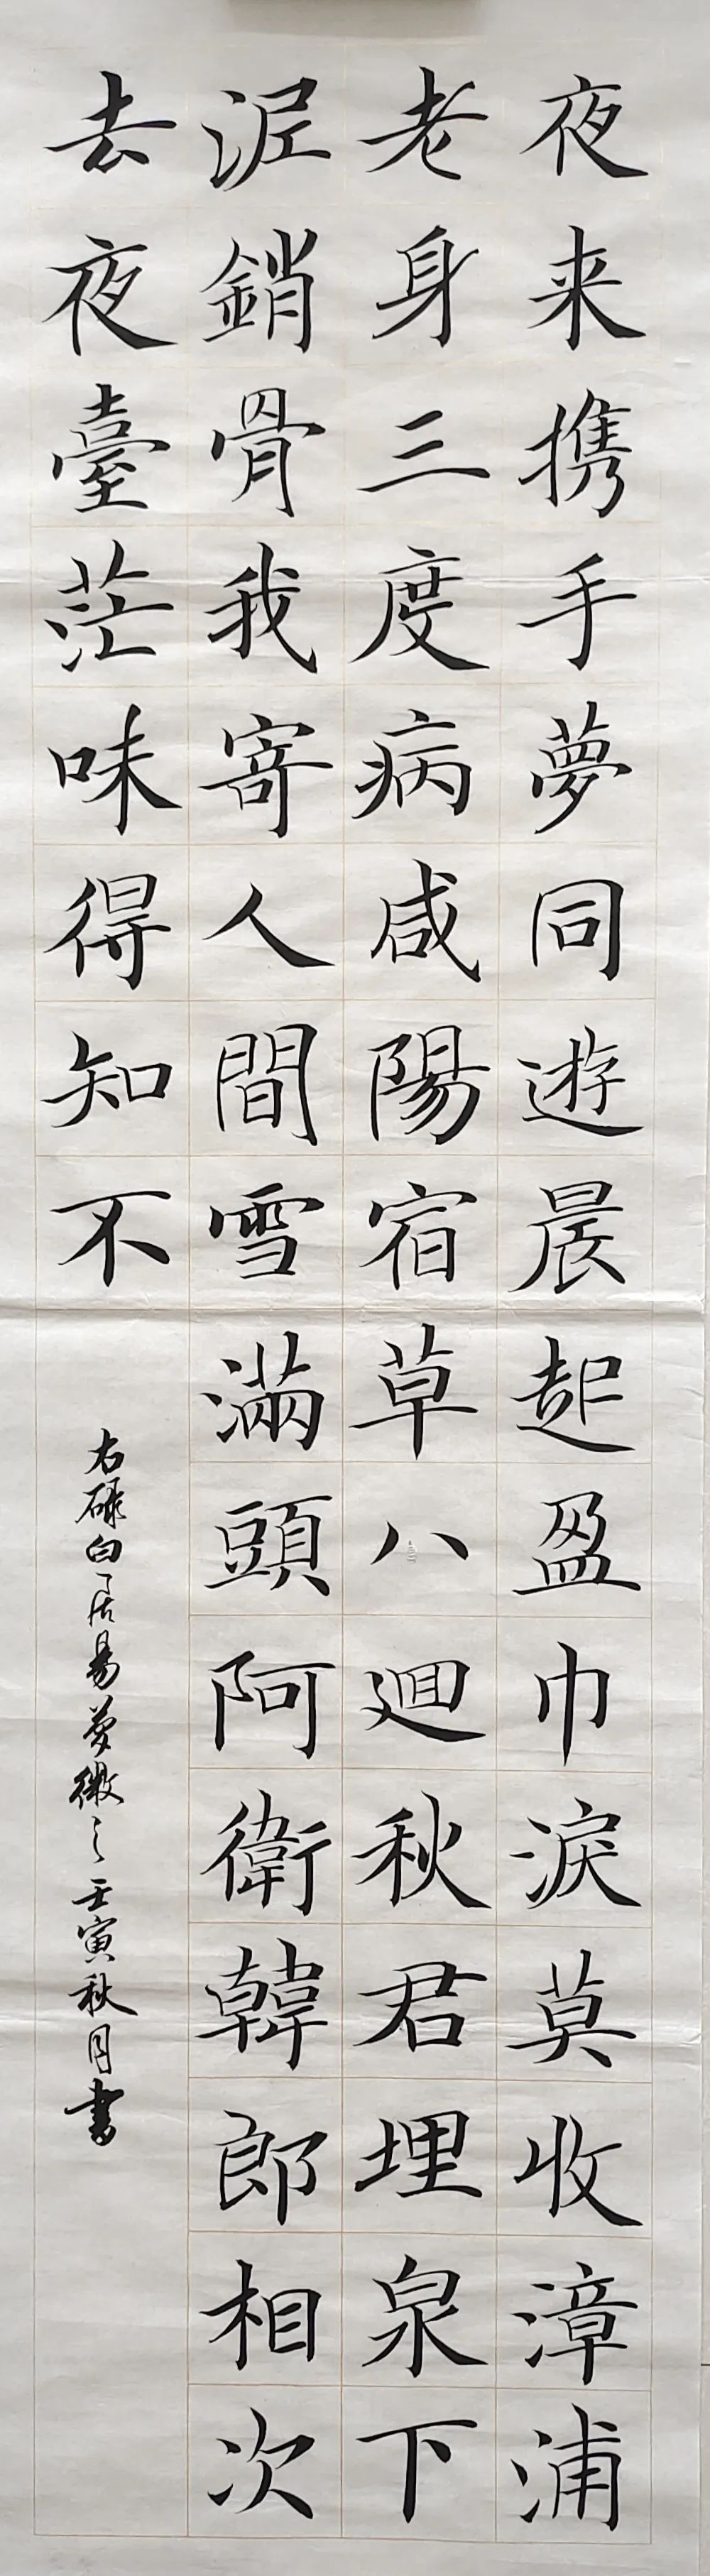 夜来携手夢同遊晨起盈巾淚莫收漳浦
老身三度病咸陽宿草八廻秋君埋泉下
泥銷骨我寄人間雪滿頭阿衛韓郎相次
去夜臺茫味得知不
右碌白居易夢微之壬寅秋月書